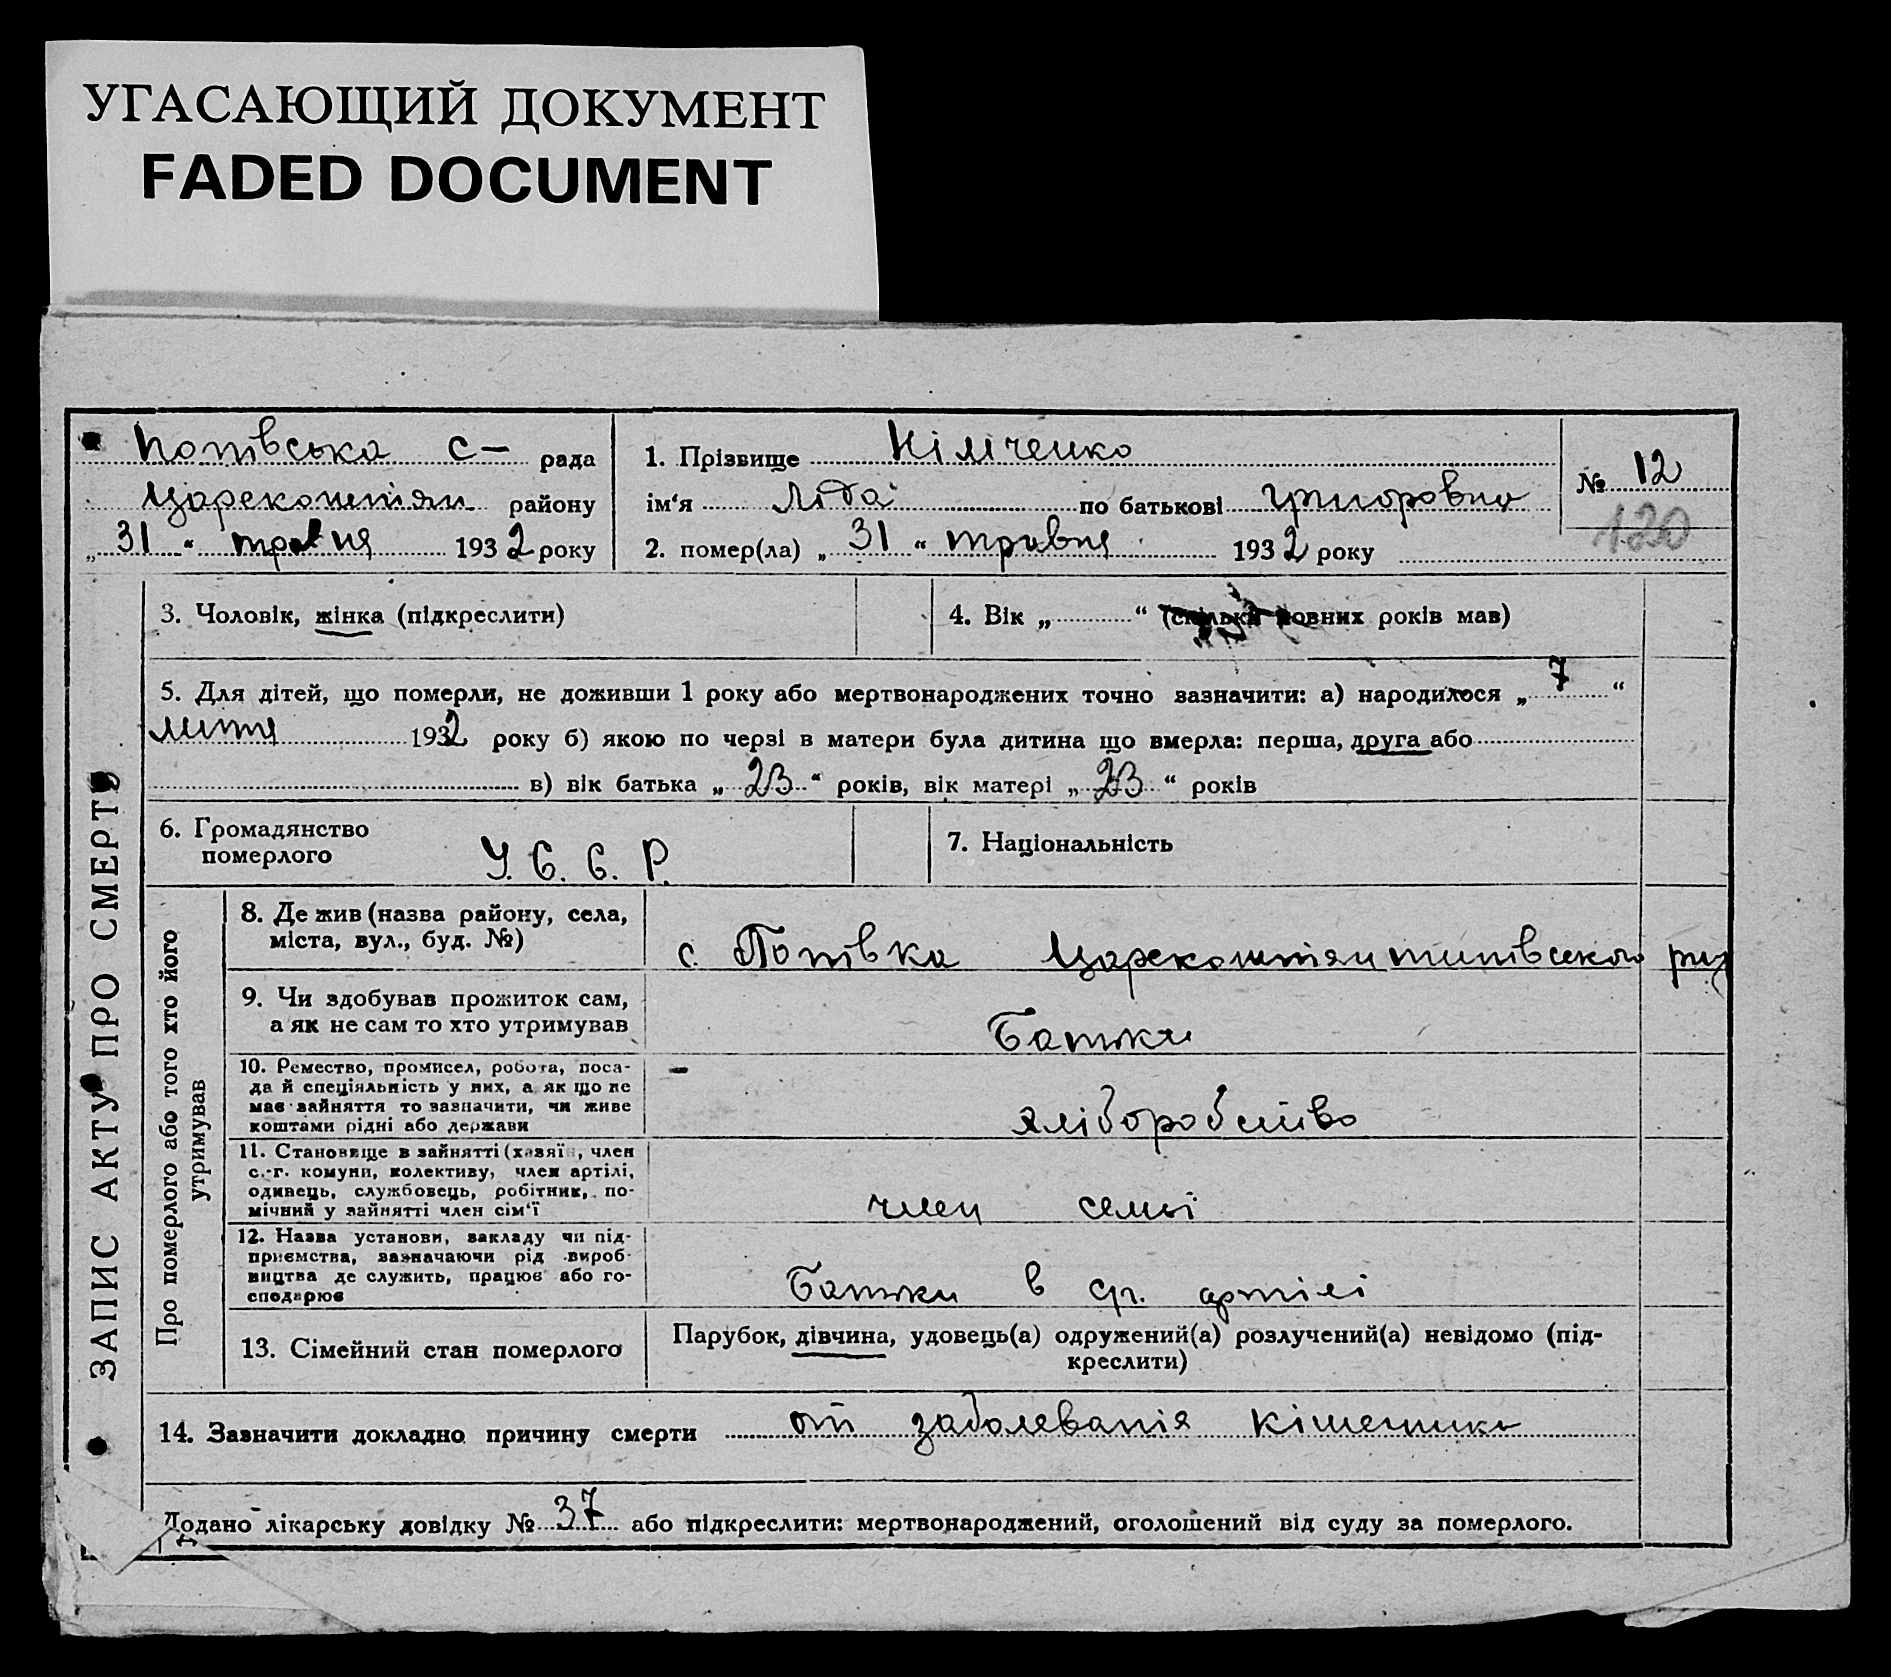 УГАСАЮЩИЙ ДОКУМЕНТ
FADED DOCUMENT
Попівська с– рада
Царекостян району
„31“ травня 1932 року
1. Прізвище Кімченко
ім‘я Ліда по батькові Григоровна
2. помер(ла) „31“ травня 1932 року
№ 12
120
ЗАПИС АКТУ ПРО СМЕРТЬ
3. Чоловік, жінка (підкреслити)
4. Вік „ “ (скільки повних років мав)
5. Для дітей, що померли, не доживши 1 року або мертвонароджених точно зазначити: а) народилося „7“
1932 року б) якою по черзі в матери була дитина що вмерла: перша, друга або
в) вік батька „23“ років, вік матері „23“ років
6. Громадянство
померлого
У. С. С. Р.
7. Національність
Про померлого або того хто його
утримував
8. Де жив (назва району, села,
міста, вул., буд. №)
с. Попівка Царекостянтинівського
9. Чи здобував прожиток сам,
а як не сам то хто утримував
Батьки
10. Ремество, промисел, робота, поса-
да й спеціяльність у них, а як що не
має зайняття то зазначити, чи живе
коштами рідні або держави
–
хліборобство
11. Становище в зайнятті (хазяїн, член
с.-г. комуни, колективу, член артілі,
одинець, службовець, робітник, по-
мічний у зайнятті член сім‘ї
член семьї
12. Назва установи, закладу чи під-
приємства, зазначаючи рід вироб-
ництва де служить, працює або го-
сподарює
Батьки в ср. артілі
13. Сімейний стан померлого
Парубок, дівчина, удовець(а) одружений(а) розлучений(а) невідомо (під-
креслити)
14. Зазначити докладно причину смерти от заболеванія кішечника
Додано лікарську довідку № 37 або підкреслити: мертвонароджений, оголошений від суду за померлого.